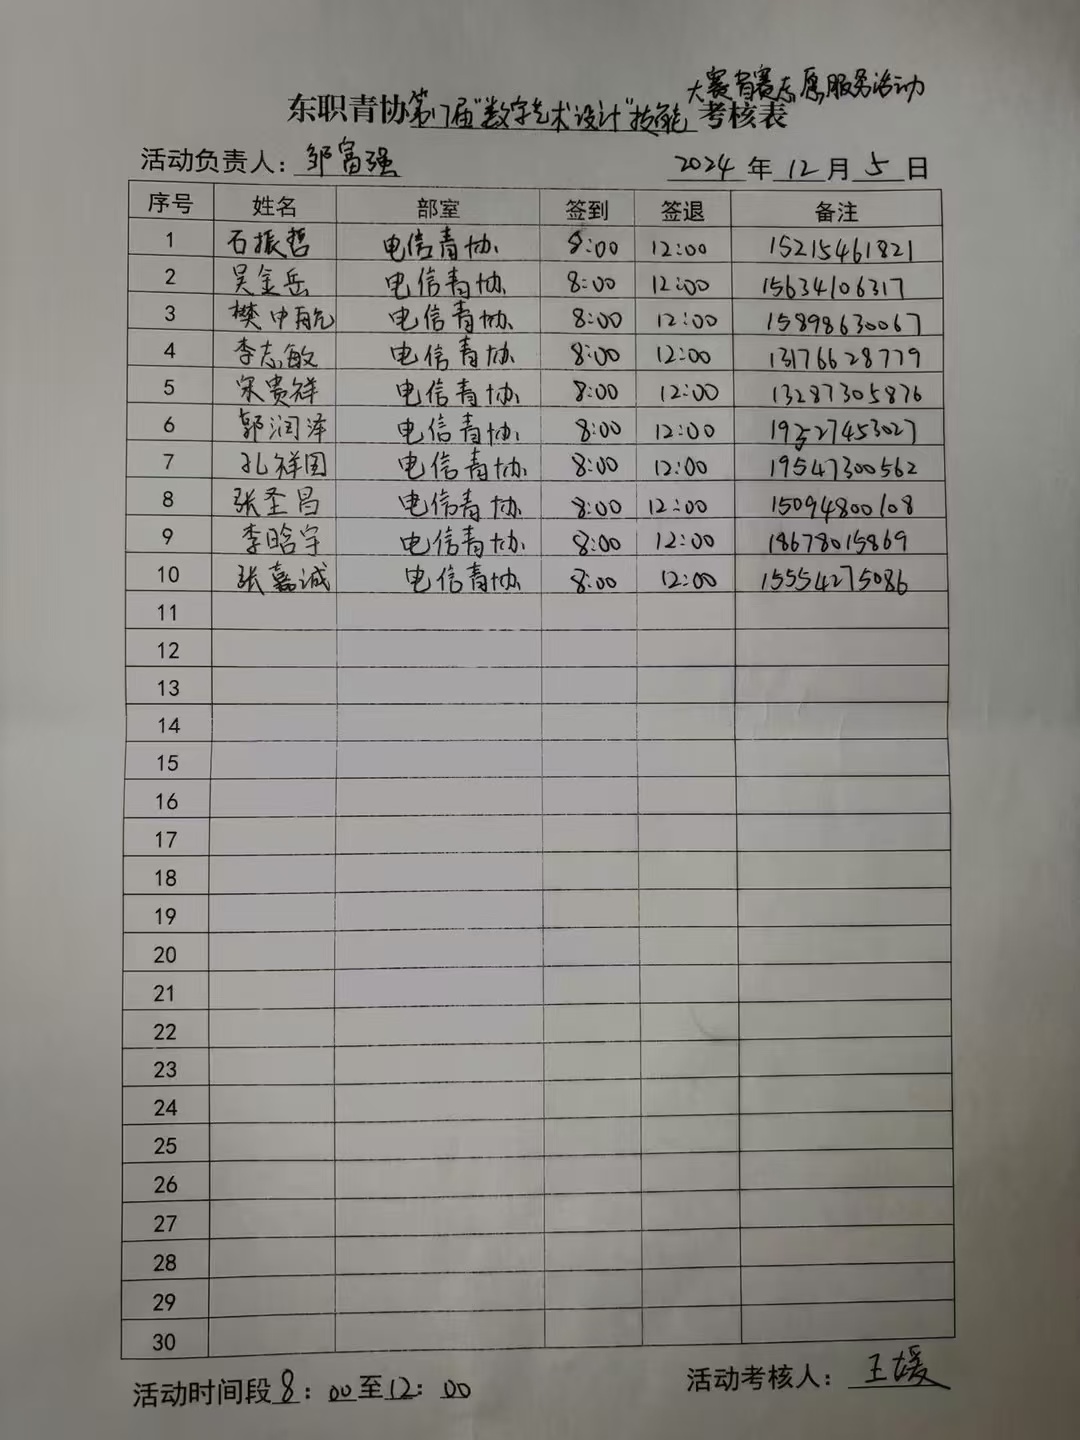 大赛省赛志愿服务活动
东职青协第17届"数字艺术设计"技能考核表
活动负责人：邹富强 2024年12月5日
序号 姓名 部室 签到 签退 备注
1 石振哲 电信青协 8:00 12:00 15215461821
2 吴金岳 电信青协 8:00 12:00 15634106317
3 樊中航 电信青协 8:00 12:00 15898630067
4 李志敏 电信青协 8:00 12:00 13176628779
5 宋贵祥 电信青协 8:00 12:00 13287305876
6 郭润泽 电信青协 8:00 12:00 19527453027
7 孔祥国 电信青协 8:00 12:00 19547300562
8 张圣昌 电信青协 8:00 12:00 15094800108
9 李晗宇 电信青协 8:00 12:00 18678015869
10 张嘉诚 电信青协 8:00 12:00 15554275086
11
12
13
14
15
16
17
18
19
20
21
22
23
24
25
26
27
28
29
30
活动时间段8：00至12：00 活动考核人：王媛